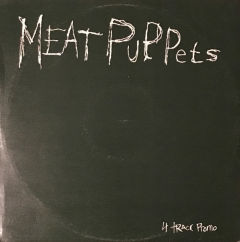 MEAT PUPPets
4 track Promo